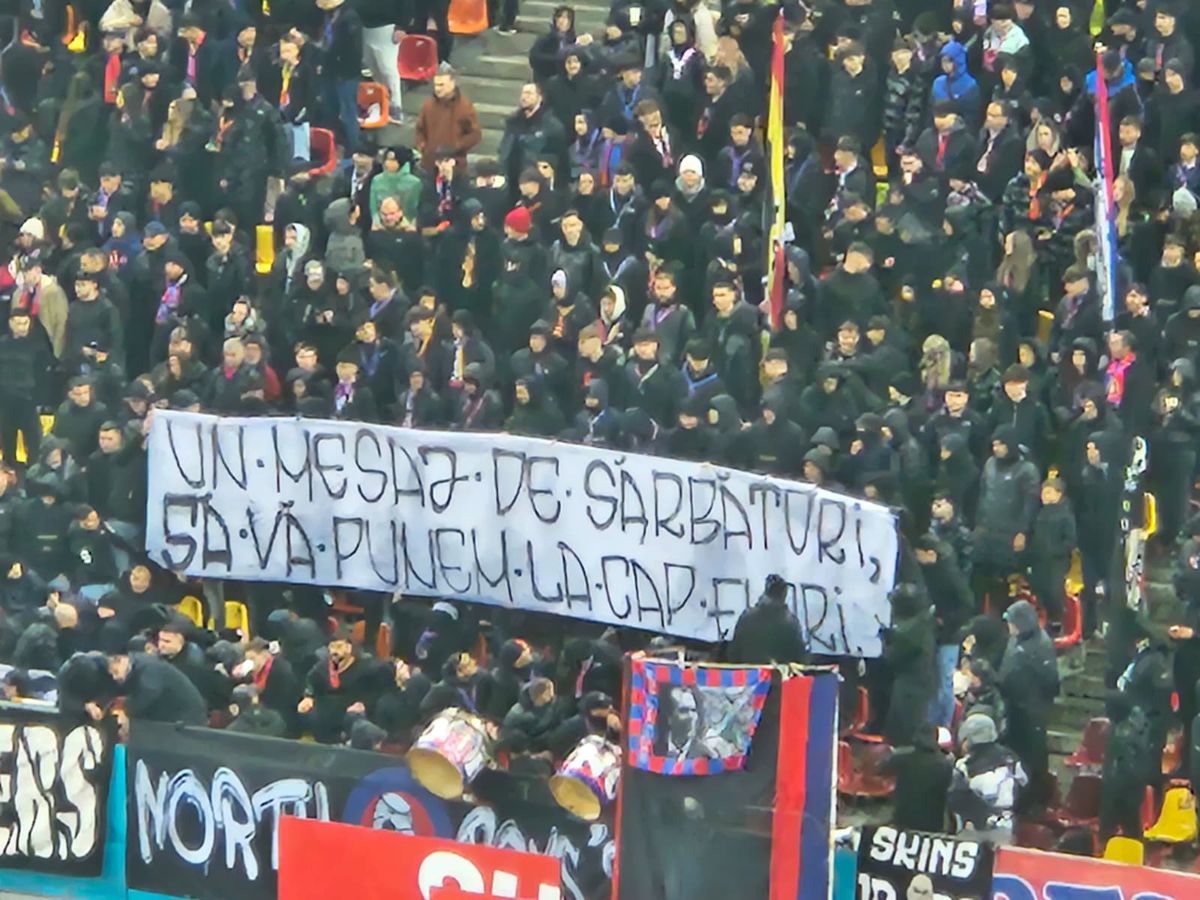 UN·MESAJ·DE·SĂRBĂTORI,
SĂ·VĂ·PUNEM·LA·CAP·FLORI.
NORTH
SKINS